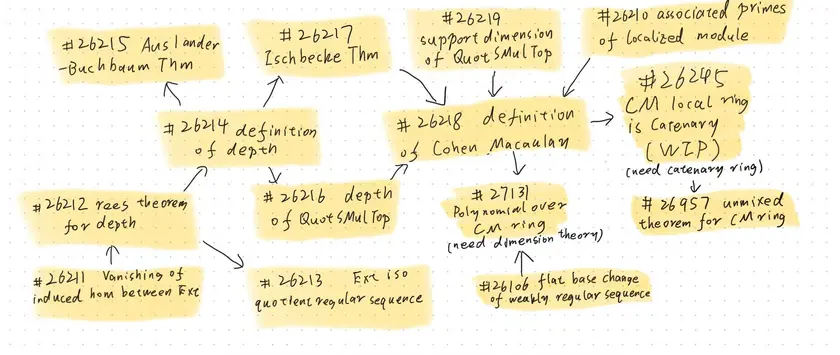 #26215 Auslander
-Buchbaum Thm
#26217
Ischbecke Thm
#26219
support dimension
of QuotSMulTop
#26210 associated primes
of localized module
#26214 definition
of depth
#26218 definition
of Cohen Macaulay
#26245
CM local ring
is Catenary
(WIP)
(need catenary ring)
#26212 rees theorem
for depth
#26216 depth
of QuotSMulTop
#27131
Polynomial over
CM ring
(need dimension theory)
#26957 unmixed
theorem for CM ring
#26211 Vanishing of
induced hom between Ext
#26213 Ext iso
quotient regular sequence
#26106 flat base change
of weakly regular sequence